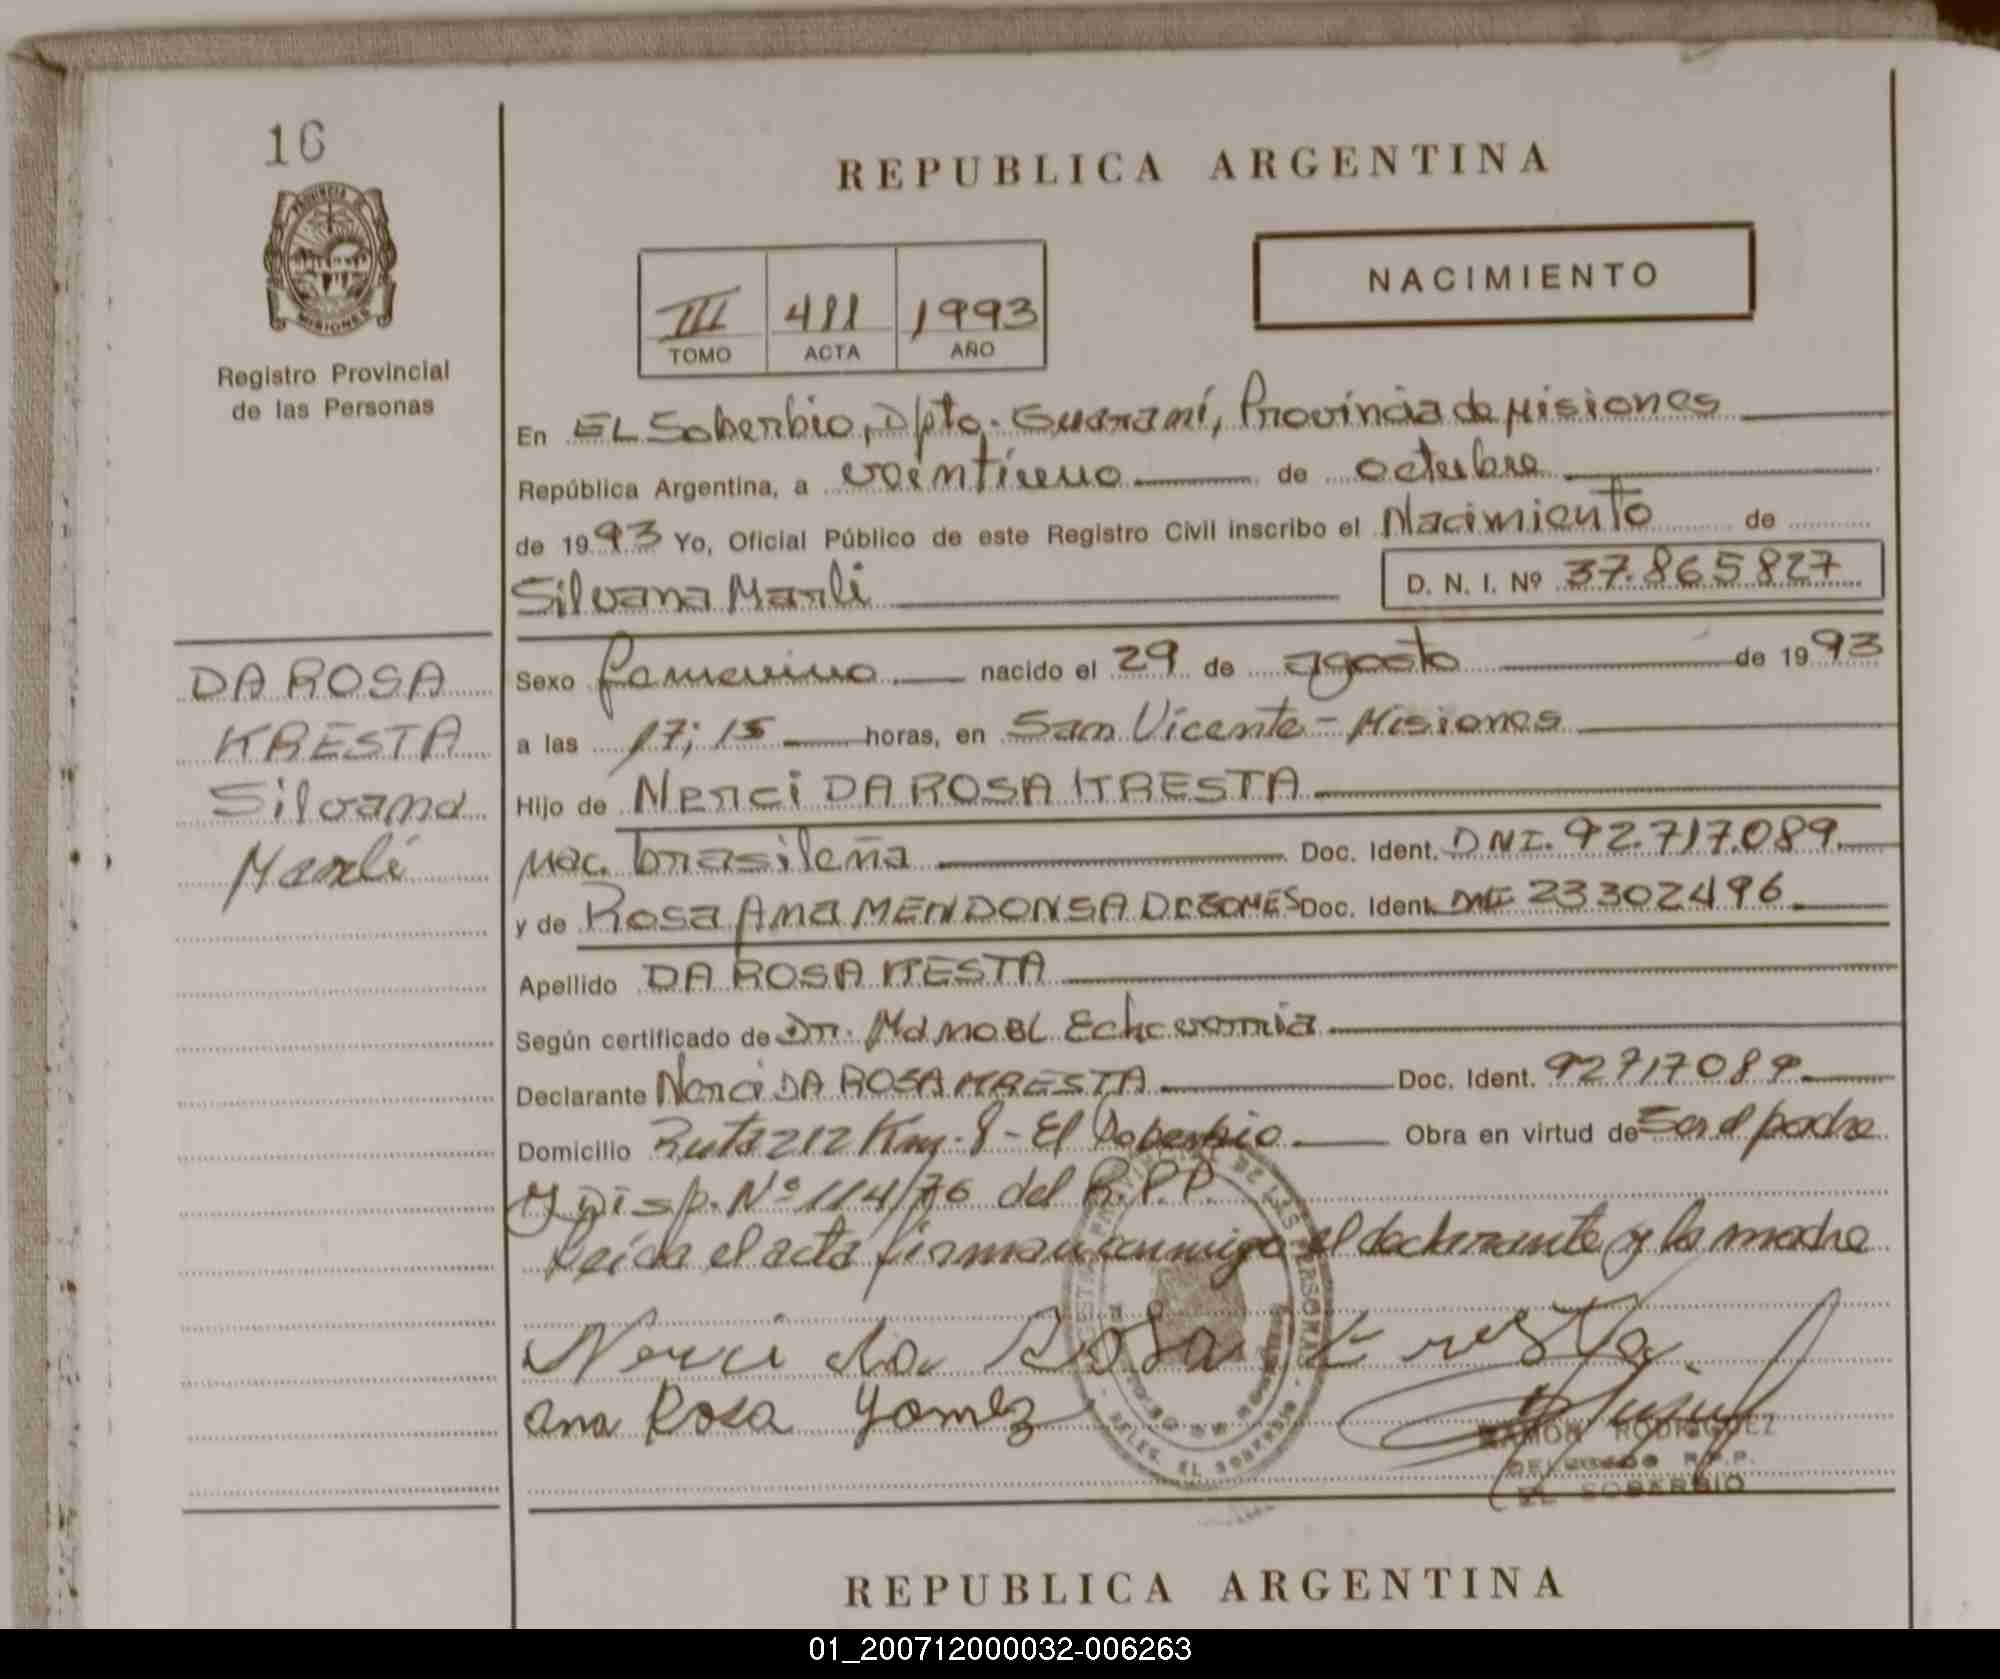 16
REPUBLICA ARGENTINA
PROVINCIA DE
MISIONES
NACIMIENTO
III 411 1993
TOMO ACTA AÑO
Registro Provincial
de las Personas
En EL Soberbio, Dpto. Guaraní, Provincia de Misiones
República Argentina, a veintiuno de octubre
de 1993 Yo, Oficial Público de este Registro Civil inscribo el Nacimiento de
Silvana Marli D. N. I. Nº 37.865827
DA ROSA
KRESTA
Silvana
Marli
Sexo femenino nacido el 29 de agosto de 1993
a las 17;15 horas, en San Vicente - Misiones
Hijo de Nerci DA ROSA KRESTA
nac. brasileña Doc. Ident. DNI. 92.717.089
y de Rosa Ana MENDONSA De GOMES Doc. Ident. 23302496
Apellido DA ROSA KRESTA
Según certificado de Dr. Manoel Echeverria
Declarante Nerci DA ROSA KRESTA Doc. Ident. 92717089
Domicilio Ruta 212 Km. 8 - El Soberbio Obra en virtud de Ser el padre
y Disp. Nº 114/76 del R.P.P.
Leída el acta firman conmigo el declarante y la madre
Nerci da Rosa Kresta
Ana Rosa Gomez
RAMON RODRIGUEZ
DELEGADO R.P.P.
EL SOBERBIO
REPUBLICA ARGENTINA
01_200712000032-006263